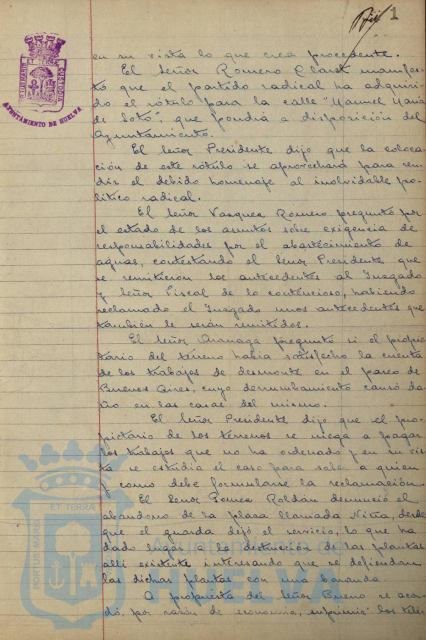 1
en su vista lo que crea procedente.
El Señor Romero Claret manifes-
tó que el partido radical ha adquiri-
do el rótulo para la calle "Manuel Maria
de Soto", que pondrá a disposición del
Ayuntamiento.
El Señor Presidente dijo que la coloca-
ción de este rótulo se aprovechará para ren-
dir el debido homenaje al inolvidable po-
litico radical.
El Señor Vasquez Romero preguntó por
el estado de los asuntos sobre exigencia de
responsabilidades por el abastecimiento de
aguas, contestando el Señor Presidente que
se remitieron los antecedentes al Juzgado
y Señor Fiscal de lo contencioso, habiendo
reclamado el Juzgado unos antecedentes que
tambien le serán remitidos.
El Señor preguntó si el propie-
tario del terreno habia satisfecho la cuenta
de los trabajos de desmonte en el paseo de
Buenos Aires, cuyo derrumbamiento causó da-
ño en las casas del mismo.
El Señor Presidente dijo que el pro-
pietario de los terrenos se niega a pagar
los trabajos que no ha ordenado y en su vis-
ta se estudia el caso para saber a quien
y como debe formularse la reclamación.
El Señor Ponce Roldán denunció el
abandono de la plaza llamada Niña, desde
que el guarda dejó el servicio, lo que ha
dado lugar a la destrucción de las plantas
alli existente interesando que se defiendan
las dichas plantas con una baranda.
A propuesta del Señor Bueno se acor-
dó, por razón de economia, suprimir los telé-
AYUNTAMIENTO DE HUELVA
PORTUS MARIS ET TERRAE CUSTODIA
Ayuntamiento de
HUELVA
PORTUS MARIS ET TERRAE